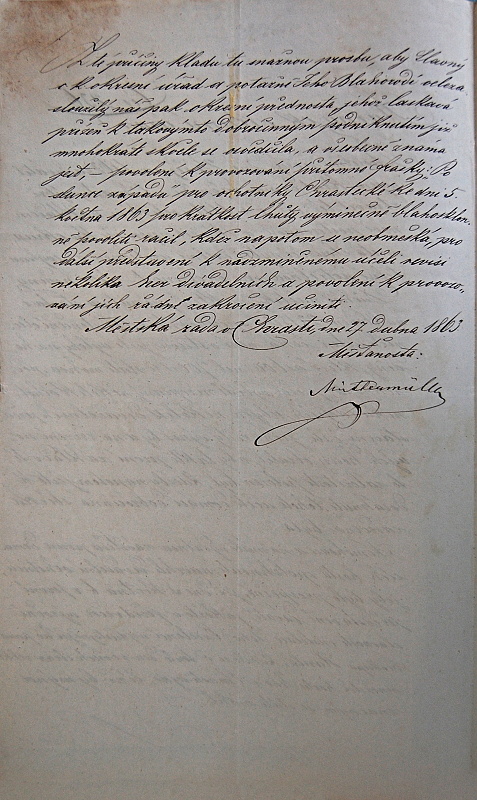 Z té příčiny kladu tu snažnou prosbu, aby Slavný
c k okresní úřad a potažně Jeho Blahorodí veleza
sloužilý náš pak okresní přednosta, jehož laskavá
přízeň k takovýmto dobročinným podniknutím již
mnohokráte skvěle se osvědčila, a všeobecně známa
jest, – povolení k provozování přítomné frašky: Po
slunce západu pro ochotníky Chrastecké ke dni 5.
května 1863 pro krátkost lhůty výminečně blahosklon-
ně povoliti ráčil, kdež napotom se neobmešká, pro
další představení k nadzmíněnému účeli revisi
několika her divadelních a povolení k provozo-
vání jich řádné zakročení učiniti.
Městská rada v Chrasti, dne 27. dubna 1863
Měšťanosta: